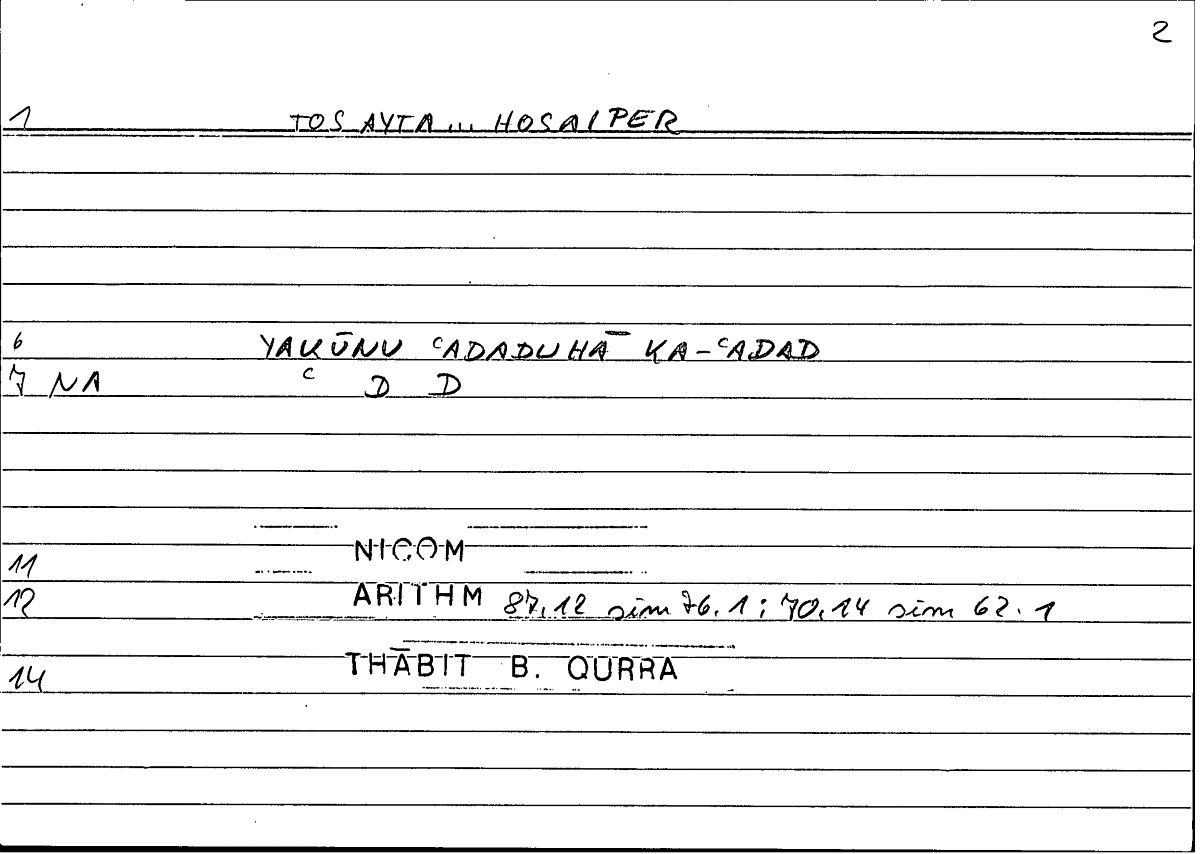 2
1 TOSAYTA... HOSAIPER
6 YAKŪNU ᶜADADUHĀ KA-ᶜADAD
7 NA ᶜ D D
11 NICOM
12 ARITHM 87.12 sim 76.1; 70.14 sim 62.1
14 THĀBIT B. QURRA